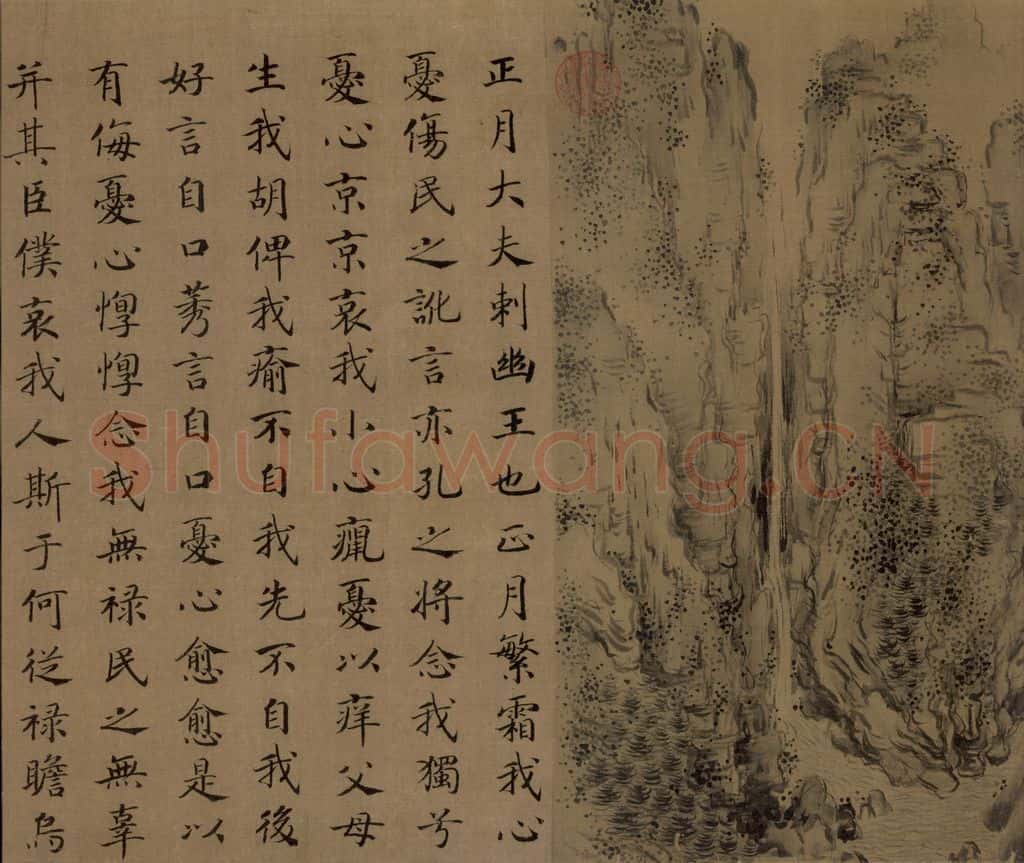 正月大夫刺幽王也正月繁霜我心
憂傷民之訛言亦孔之將念我獨兮
憂心京京哀我小心癙憂以痒父母
生我胡俾我瘉不自我先不自我後
好言自口莠言自口憂心愈愈是以
有侮憂心惸惸念我無禄民之無辜
并其臣僕哀我人斯于何從禄瞻烏
Shufawang.CN